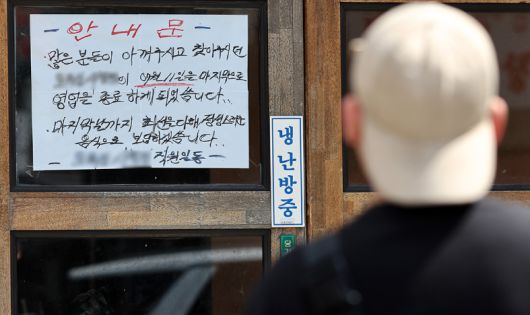 - 안 내 문 -
많은 분들이 아껴주시고 찾아주던
의 영업 11월을 마지막으로
영업을 종료하게 되었습니다..
마지막날까지 최선을 다해 정성스러운
음식으로 보답하겠습니다..
직원일동 -
냉난방중